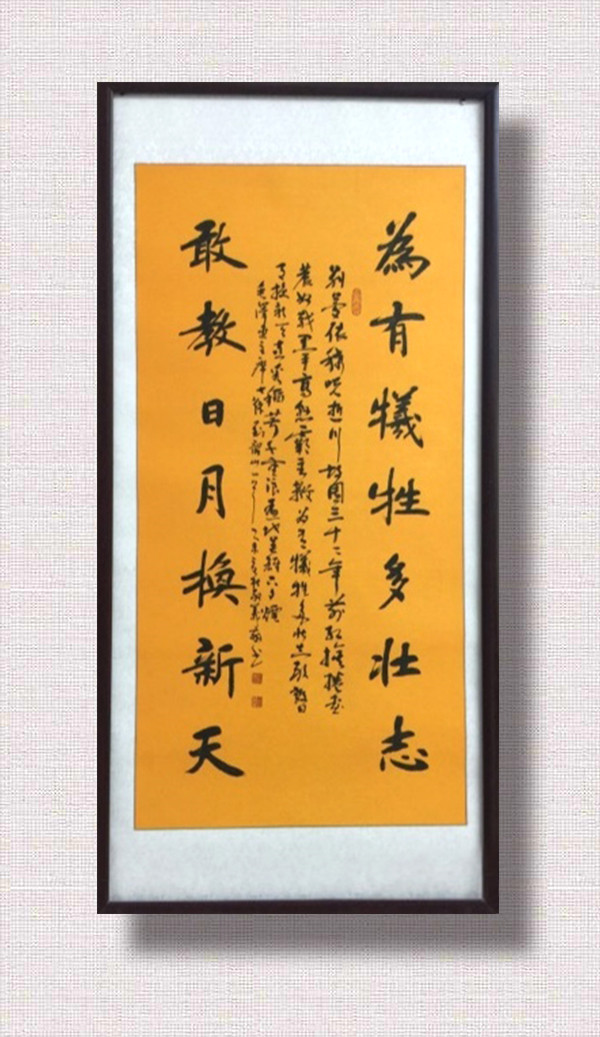 為有犧牲多壯志
別夢依稀咒逝川故園三十二年前紅旗捲起
農奴戟黑手高懸霸主鞭為有犧牲多壯志敢教日
月換新天喜看稻菽千重浪遍地英雄下夕煙
毛澤東主席七律到韶山一首乙未
敢教日月換新天